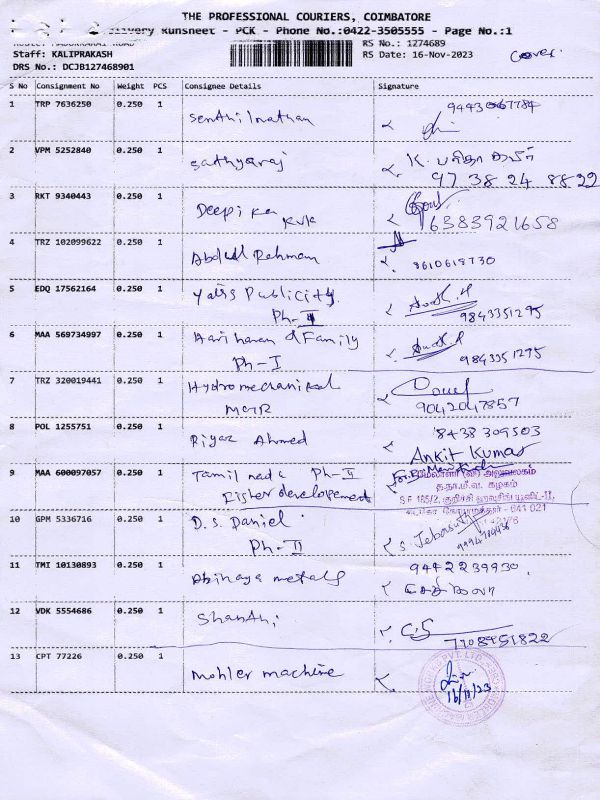 THE PROFESSIONAL COURIERS, COIMBATORE
Runsheet - PCK - Phone No.:0422-3505555 - Page No.:1
Staff: KALIPRAKASH
RS No.: 1274689
DRS No.: DCJB127468901
RS Date: 16-Nov-2023
Cover.
S No Consignment No Weight PCS Consignee Details Signature
1 TRP 7636250 0.250 1 Senthilnathan
2 VPM 5252840 0.250 1 Sathyaraj
97 38 24 8822
3 RKT 9340443 0.250 1 Deepika
KVK
6383921658
4 TRZ 102099622 0.250 1 Abdul Rehman
8610618730
5 EDQ 17562164 0.250 1 Yatis Publicity.
Ph-I
9843351295
6 MAA 569734997 0.250 1 Hariharan & Family
Ph-I
9843351295
7 TRZ 320019441 0.250 1 Hydromechanikal
9042047857
8 POL 1255751 0.250 1 Riyaz Ahmed
8438309503
Ankit Kumar
9 MAA 600097057 0.250 1 Tamil nadu Ph-II
Fisher developement
10 GPM 5336716 0.250 1 D.S. Daniel.
Ph-II
11 TMI 10130893 0.250 1 Abinaya metals
9442239930
12 VDK 5554686 0.250 1 Shanthi
7708951822
13 CPT 77226 0.250 1 Mohler machine
16/11/23